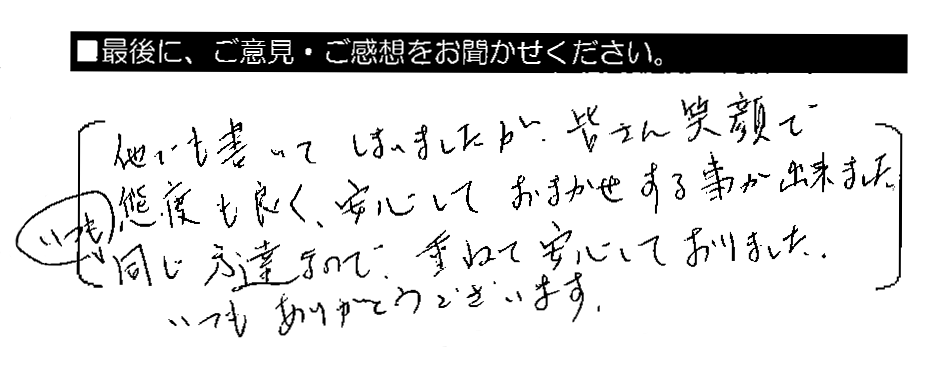 ■最後に、ご意見・ご感想をお聞かせください。
他でも書いてしまいましたが、皆さん笑顔で
態度も良く、安心しておまかせする事が出来ました。
いつも
同じ方達なので、重ねて安心しておりました。
いつもありがとうございます。